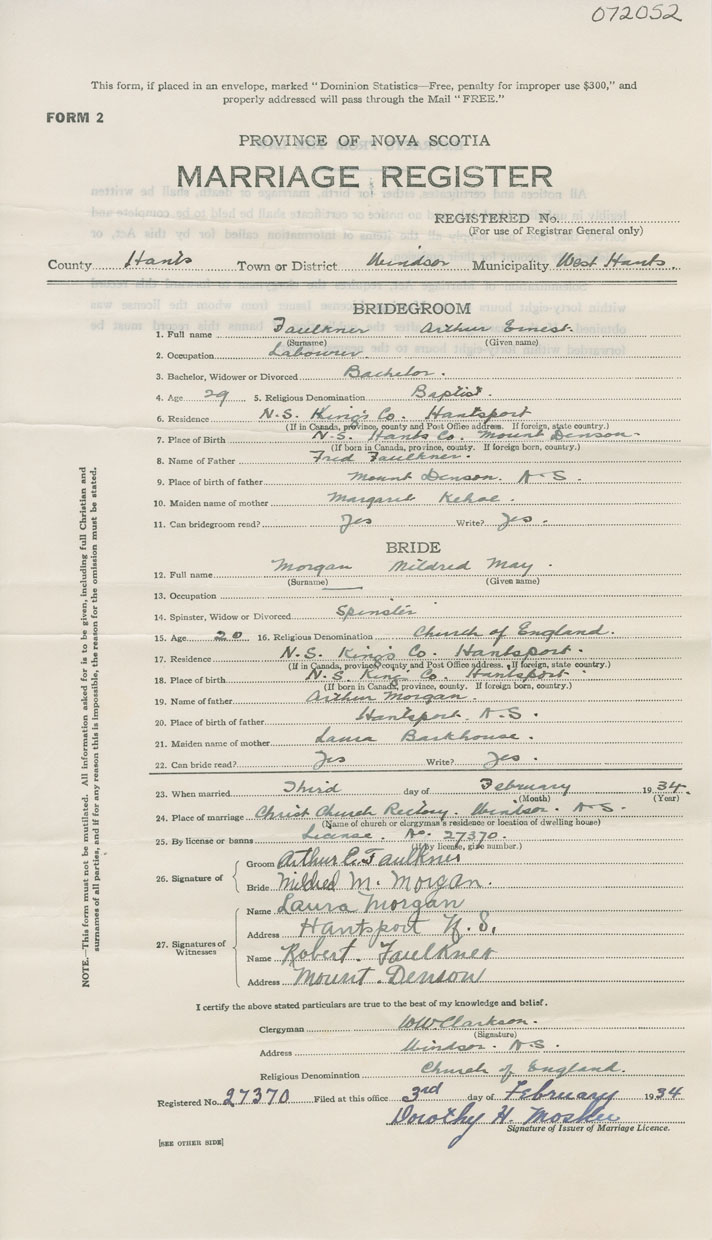 072052
This form, if placed in an envelope, marked "Dominion Statistics—Free, penalty for improper use $300," and
properly addressed will pass through the Mail "FREE."
FORM 2
PROVINCE OF NOVA SCOTIA
MARRIAGE REGISTER
REGISTERED No.
(For use of Registrar General only)
County Hants Town or District Windsor Municipality West Hants.
BRIDEGROOM
1. Full name Faulkner Arthur Ernest.
(Surname) (Given name)
2. Occupation Labourer.
3. Bachelor, Widower or Divorced Bachelor.
4. Age 29 5. Religious Denomination Baptist.
6. Residence N.S. King's Co. Hantsport
(If in Canada, province, county and Post Office address. If foreign, state country.)
7. Place of Birth N.S. Hants Co. Mount Denson.
(If born in Canada, province, county. If foreign born, country.)
8. Name of Father Fred Faulkner.
9. Place of birth of father Mount Denson. N.S.
10. Maiden name of mother Margaret Kehoe.
11. Can bridegroom read? Yes Write? Yes.
BRIDE
12. Full name Morgan Mildred May.
(Surname) (Given name)
13. Occupation
14. Spinster, Widow or Divorced Spinster
15. Age 20 16. Religious Denomination Church of England.
17. Residence N.S. King's Co. Hantsport.
(If in Canada, province, county and Post Office address. If foreign, state country.)
18. Place of birth N.S. King's Co. Hantsport.
(If born in Canada, province, county. If foreign born, country.)
19. Name of father Arthur Morgan.
20. Place of birth of father Hantsport. N.S.
21. Maiden name of mother Laura Barkhouse.
22. Can bride read? Yes Write? Yes.
23. When married Third day of February 1934.
(Month) (Year)
24. Place of marriage Christ Church Rectory. Windsor. N.S.
(Name of church or clergyman's residence or location of dwelling house)
25. By license or banns License. No. 27370.
(If by license, give number.)
26. Signature of
Groom Arthur E. Faulkner
Bride Mildred M. Morgan.
27. Signatures of Witnesses
Name Laura Morgan
Address Hantsport N.S.
Name Robert. Faulkner
Address Mount. Denson
NOTE.—This form must not be mutilated. All information asked for is to be given, including full Christian and
surnames of all parties, and if for any reason this is impossible, the reason for the omission must be stated.
I certify the above stated particulars are true to the best of my knowledge and belief.
Clergyman WW Clarkson.
(Signature)
Address Windsor. N.S.
Religious Denomination Church of England.
Registered No. 27370 Filed at this office 3rd day of February 1934
Dorothy H.
Signature of Issuer of Marriage Licence.
[SEE OTHER SIDE]